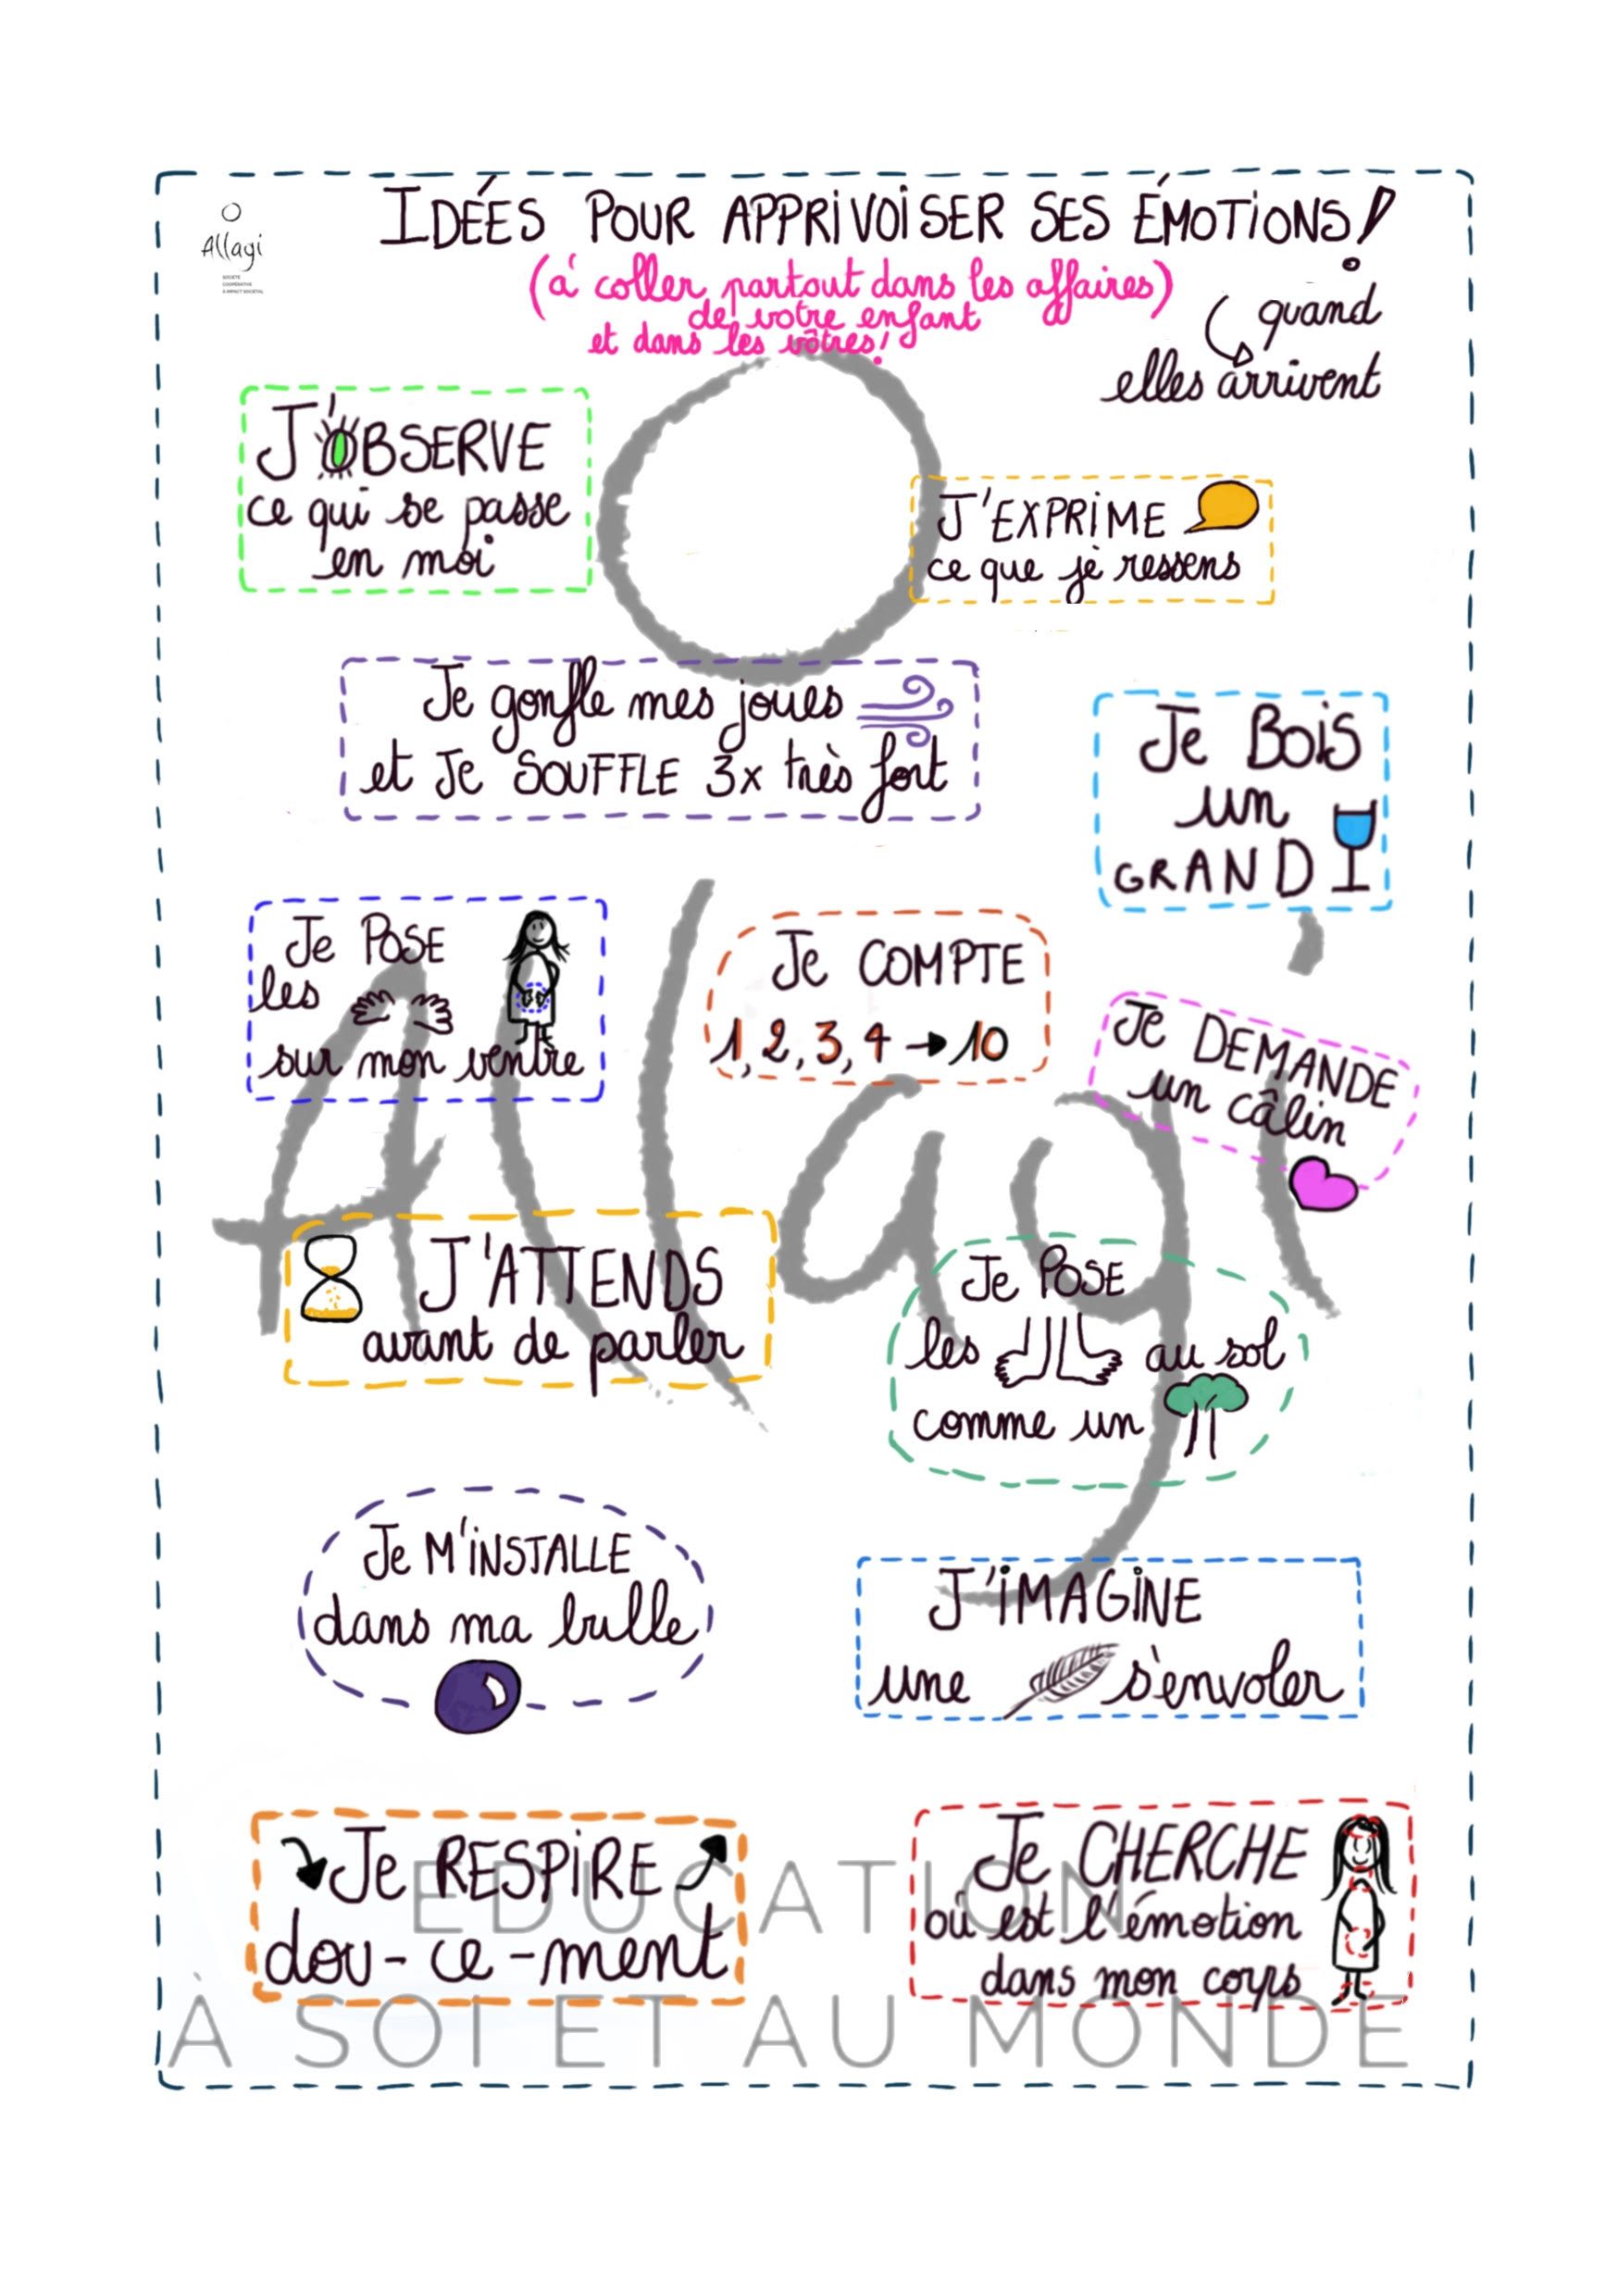 Allagi
IDÉES POUR APPRIVOISER SES ÉMOTIONS!
(à coller partout dans les affaires)
de votre enfant
et dans les vôtres!
quand
elles arrivent
J'OBSERVE
ce qui se passe
en moi
J'EXPRIME
ce que je ressens
Je gonfle mes joues
et Je SOUFFLE 3x très fort
Je BOIS
un
GRAND
Je POSE
les
sur mon ventre
Je COMPTE
1, 2, 3, 4 → 10
Je DEMANDE
un câlin
Allagi
J'ATTENDS
avant de parler
Je POSE
les au sol
comme un
Je M'INSTALLE
dans ma bulle
J'IMAGINE
une s'envoler
Je RESPIRE
dou-ce-ment
Je CHERCHE
où est l'émotion
dans mon corps
EDUCATION
À SOI ET AU MONDE